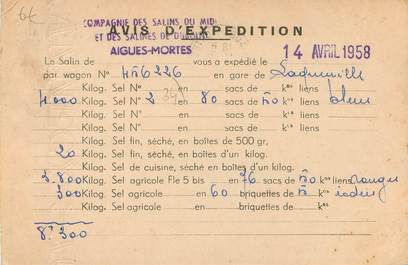 COMPAGNIE DES SALINS DU MIDI
AVIS D'EXPEDITION
ET DES SALINES DE
AIGUES-MORTES
14 AVRIL 1958
Le Salin de vous a expédié le
par wagon N° 456226 en gare de Laqueuille
4.000 Kilog. Sel N° 2 en 80 sacs de 50 kos liens bleu
Kilog. Sel N° en sacs de kos liens
Kilog. Sel N° en sacs de kos liens
Kilog. Sel fin, séché, en boîtes de 500 gr,
20 Kilog. Sel fin, séché, en boîtes d'un kilog.
Kilog. Sel de cuisine, séché en boîtes d'un kilog.
3.800 Kilog. Sel agricole Fle 5 bis en 76 sacs de 50 kos liens rouges
300 Kilog. Sel agricole en 60 briquettes de 5 kos
Kilog. Sel agricole en briquettes de kos